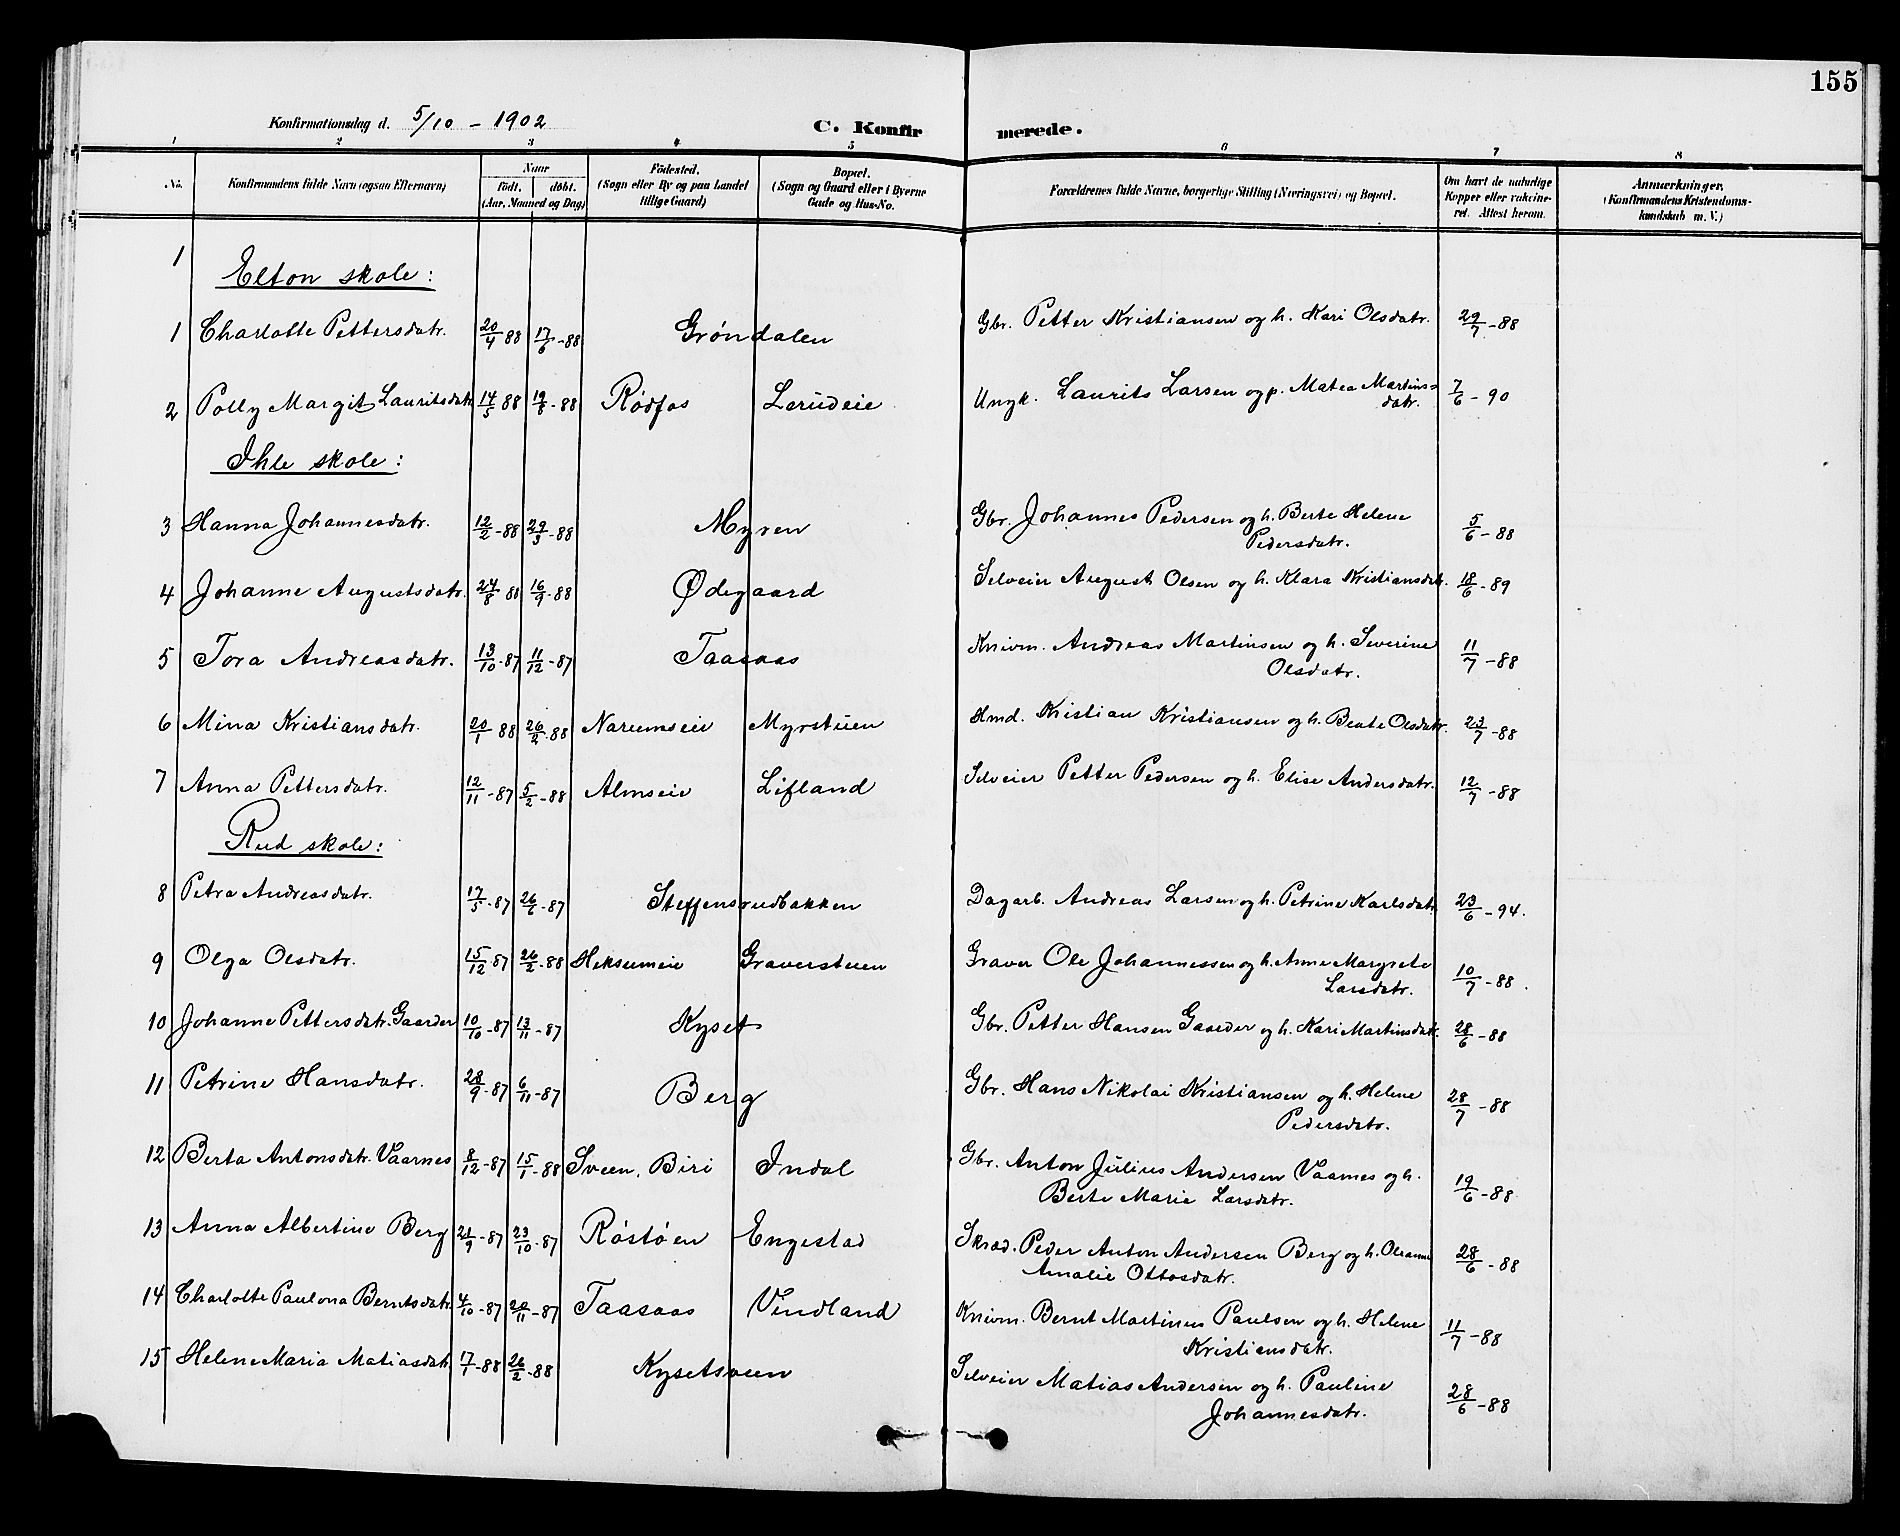 155
Konfirmationsdag d. 5/10 - 1902 C. Konfirmerede.
1 2 3 4 5 6 7 8
No. Konfirmandens fulde Navn (ogsaa Efternavn) Naar født. døbt. (Aar, Maaned og Dag) Fødested. (Sogn eller By og paa Landet tillige Gaard) Bopæl. (Sogn og Gaard eller i Byerne Gade og Hus-No. Forældrenes fulde Navne, borgerlige Stilling (Næringsvei) og Bopæl. Om havt de naturlige Kopper eller vaccineret. Attest herom. Anmærkninger. (Konfirmandens Kristendomskundskab m. V.)
1
Elton skole:
1 Charlotte Pettersdatr. 20/4 88 17/6-88 Grøndalen Gbr. Petter Kristiansen og h. Kari Olsdatr. 29/7-88
2 Polly Margit Lauritsdatr 14/5 88 19/8-88 Rødfos Lerudeie Ungk. Laurits Larsen og p. Matea Martins=
datr. 7/6-90
Ihle skole:
3 Hanna Johannesdatr. 12/2-88 29/3-88 Myren Gbr. Johannes Pedersen og h. Berte Helene
Pedersdatr. 5/6-88
4 Johanne Augustsdatr. 24/8 88 16/9-88 Ødegaard Selveier August Olsen og h. Klara Kristiansdatr. 18/6-89
5 Tora Andreasdatr. 13/10-87 11/12-87 Taasaas Knivm. Andreas Martinsen og h. Severine
Olsdatr. 11/7-88
6 Mina Kristiansdatr. 20/1 88 26/2-88 Narumseie Myrstuen Hmd. Kristian Kristiansen og h. Beate Olsdatr. 23/7-88
7 Anna Pettersdatr. 12/11-87 5/2-88 Almseie Lifland Selveier Petter Pedersen og h. Elise Andersdatr. 12/7-88
Rud skole:
8 Petra Andreasdatr. 17/5-87 26/6-87 Steffensrudbakken Dagarb. Andreas Larsen og h. Petrine Karlsdatr. 23/6-94.
9 Olga Olsdatr. 15/12 87 26/2-88 Heksumeie Graverstuen Graver Ole Johannessen og h. Anne Margrete
Larsdatr. 10/7-88.
10 Johanne Pettersdatr. Gaarder 10/10-87 13/11-87 Kyset Gbr. Petter Hansen Gaarder og h. Kari Martinsdatr. 28/6-88
11 Petrine Hansdatr. 28/9-87 6/11-87 Berg Gbr. Hans Nikolai Kristiansen og h. Helene
Pedersdatr. 28/7-88
12 Berta Antonsdatr. Vaarnes 8/12-87 15/1-88 Sveen, Biri Indal Gbr. Anton Julius Andersen Vaarnes og h.
Berte Marie Larsdatr. 19/6-88
13 Anna Albertine Berg 21/9-87 23/10-87 Røstøen Engestad Skræd. Peder Anton Andersen Berg og h. Oleanne
Amalie Ottosdatr. 28/6-88
14 Charlotte Paulona Berntsdatr. 4/10-87 20/11-87 Taasaas Vindland Knivm. Bernt Martinus Paulsen og h. Helene
Kristiansdatr. 11/7-88
15 Helene Maria Matiasdatr. 17/1-88 26/2-88 Kysetsveen Selveier Matias Andersen og h. Pauline
Johannesdatr. 28/6-88